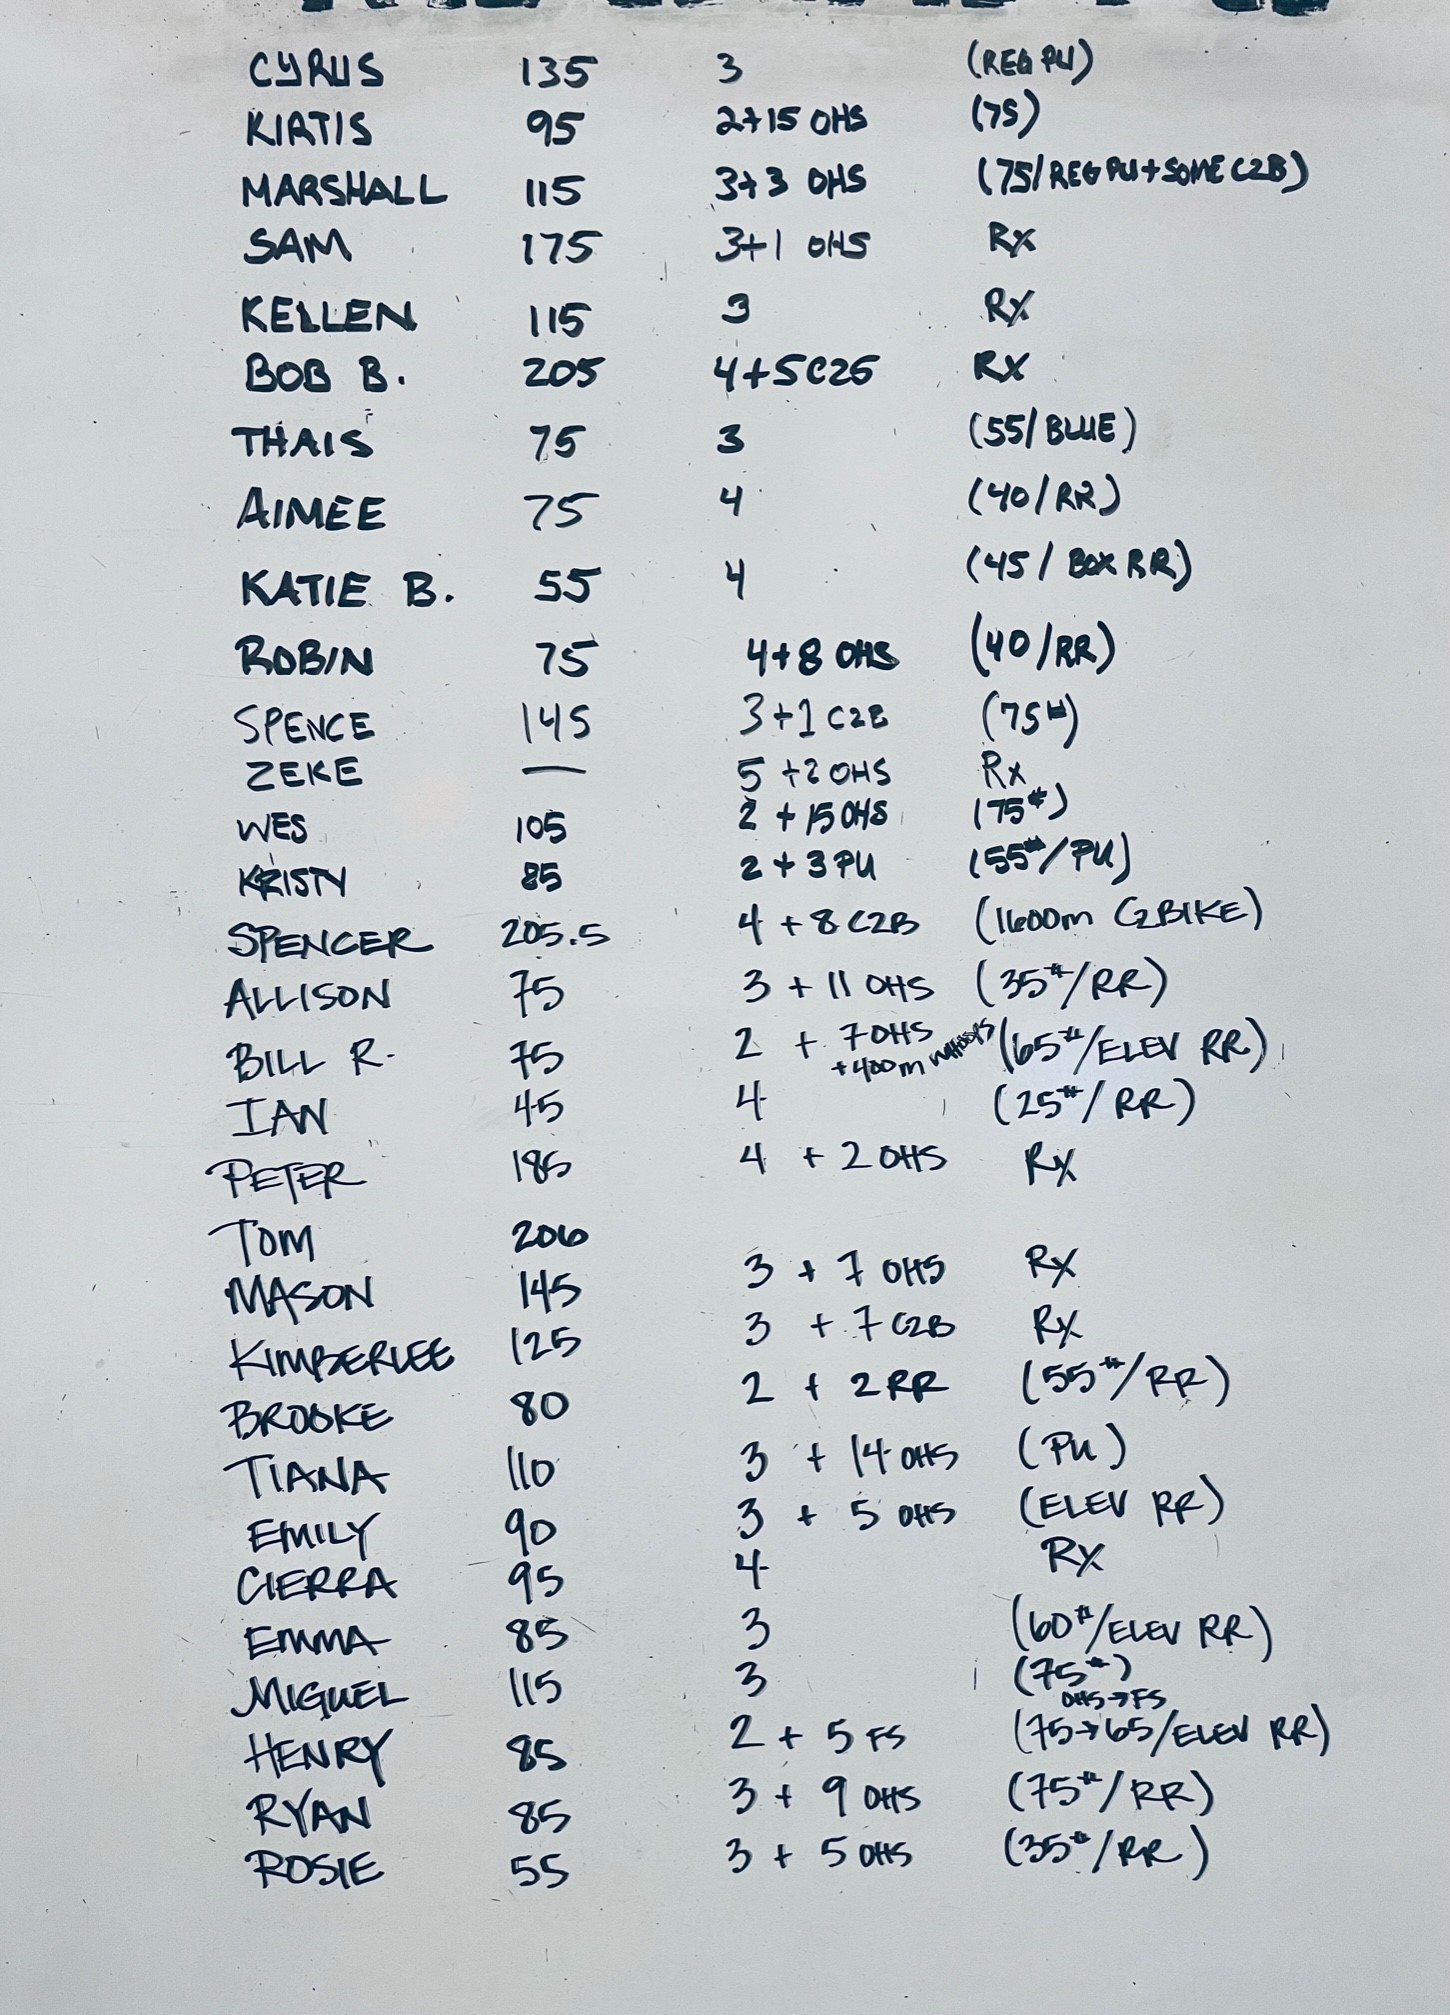 CYRUS 135 3 (REG PU)
KIRTIS 95 2+15 OHS (75)
MARSHALL 115 3+3 OHS (75/REG PU+SOME C2B)
SAM 175 3+1 OHS Rx
KELLEN 115 3 Rx
BOB B. 205 4+5 C2B Rx
THAIS 75 3 (55/BLUE)
AIMEE 75 4 (40/RR)
KATIE B. 55 4 (45/BOX RR)
ROBIN 75 4+8 OHS (40/RR)
SPENCE 145 3+1 C2B (75#)
ZEKE — 5+2 OHS Rx
WES 105 2 + 15 OHS (75#)
KRISTY 85 2 + 3 PU (55#/PU)
SPENCER 205.5 4 + 8 C2B (1600m C2BIKE)
ALLISON 75 3 + 11 OHS (35#/RR)
BILL R. 75 2 + 7 OHS (65#/ELEV RR)
+400m
IAN 45 4 (25#/RR)
PETER 185 4 + 2 OHS Rx
TOM 206
MASON 145 3 + 7 OHS Rx
KIMBERLEE 125 3 + 7 C2B Rx
BROOKE 80 2 + 2 RR (55#/RR)
TIANA 110 3 + 14 OHS (PU)
EMILY 90 3 + 5 OHS (ELEV RR)
CIERRA 95 4 Rx
EMMA 85 3 (60#/ELEV RR)
MIGUEL 115 3 (75#)
OHS→FS
HENRY 85 2 + 5 FS (75→65/ELEV RR)
RYAN 85 3 + 9 OHS (75#/RR)
ROSIE 55 3 + 5 OHS (35#/RR)